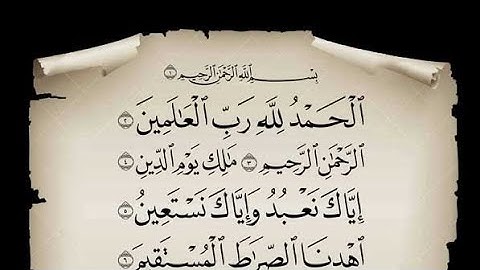 بِسْمِ ٱللَّهِ ٱلرَّحْمَٰنِ ٱلرَّحِيمِ ۝١
ٱلْحَمْدُ لِلَّهِ رَبِّ ٱلْعَٰلَمِينَ ۝٢
ٱلرَّحْمَٰنِ ٱلرَّحِيمِ ۝٣ مَٰلِكِ يَوْمِ ٱلدِّينِ ۝٤
إِيَّاكَ نَعْبُدُ وَإِيَّاكَ نَسْتَعِينُ ۝٥
ٱهْدِنَا ٱلصِّرَٰطَ ٱلْمُسْتَقِيمَ ۝٦